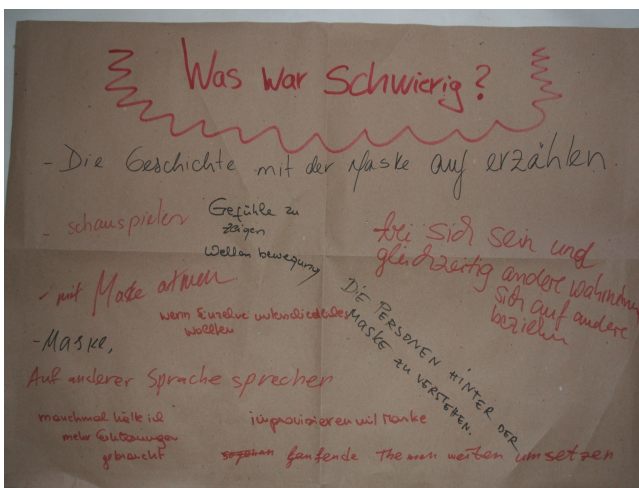 Was war schwierig?
- Die Geschichte mit der Maske auf erzählen.
- schauspielen
Gefühle zu
zeigen
Wellen bewegung
bei sich sein und
gleichzeitig andere wahrnehmen
sich auf andere
beziehn
- mit Maske atmen
wenn Einzelne unterschiedliches
wollten
DIE PERSONEN HINTER DER
MASKE ZU VERSTEHEN.
- Maske,
Auf anderer Sprache sprechen
manchmal hätte ich
mehr Erklärungen
gebraucht
improvisieren mit Maske
Themen umsetzen